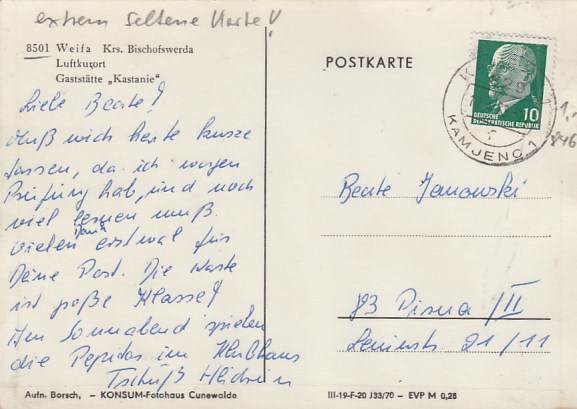 extrem seltene Karte!
8501 Weifa Krs. Bischofswerda
Luftkurort
Gaststätte „Kastanie"
Liebe Beate!
Muß mich heute kurze
fassen, da ich morgen
Prüfung hab, und noch
viel lernen muß.
Vielen Dank erst mal für
Deine Post. Die Karte
ist große Klasse!
Am Sonnabend spielen
die Pepidos im
Tschüß
POSTKARTE
DEUTSCHE
DEMOKRATISCHE REPUBLIK
10
KAMJENC 1
1,-
846
Beate Janowski
83 Pirna /II
Leninstr. 21/11
Aufn. Borsch, – KONSUM-Fotohaus Cunewalde
III-19-F-20 J33/70 – EVP M 0,25